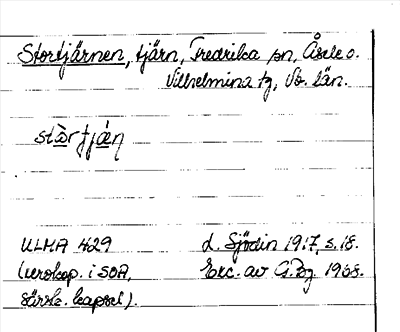 Stortjärnen, tjärn, Fredrika sn, Åsele o.
Vilhelmina tg, Vb. län.
stòrtjǽn
ULMA 429 L. Sjödin 1917, s. 18.
(xerokop. i SOA, Exc. av G. Pg 1968.
särsk. kapsel).